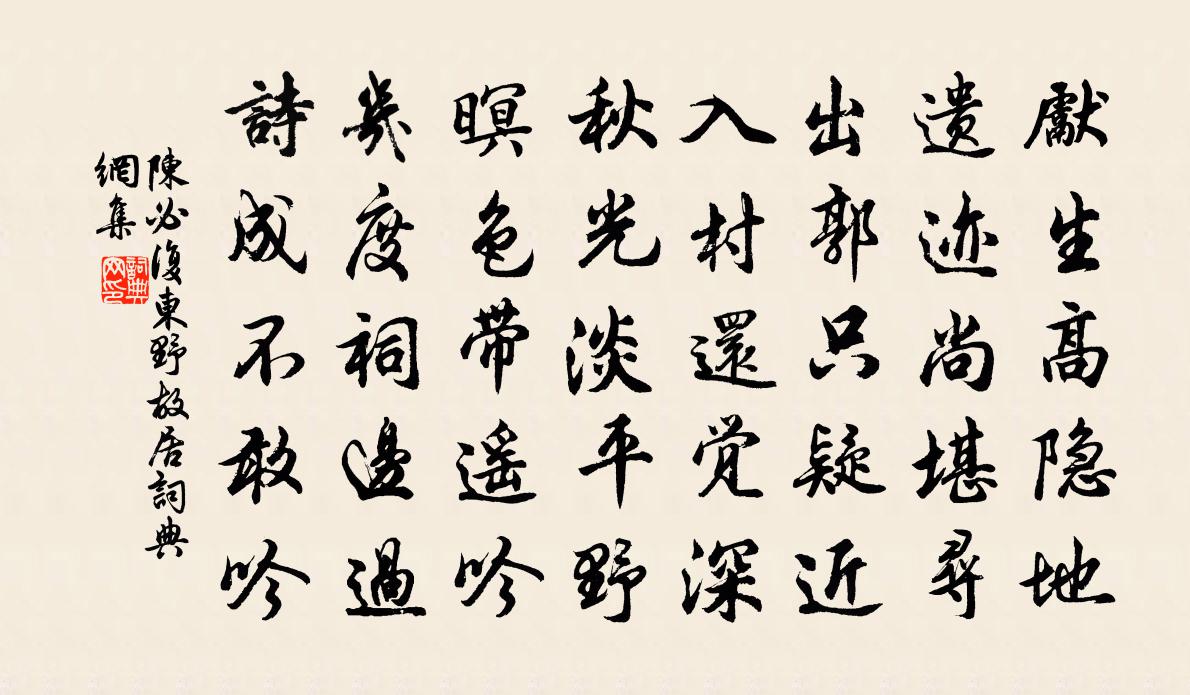 獻生高隐地
遗迹尚堪尋
出郭只疑近
入村還觉深
秋光淡平野
暝色带遥吟
幾度祠邊過
詩成不敢吟
陳必復東野故居詞典
網集
詞典
网印